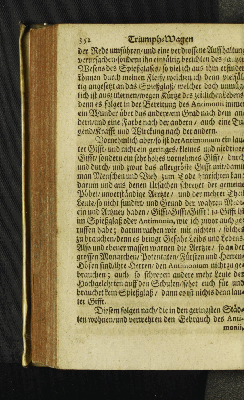 352 Triumph-Wagen
der Rede umführen/ und eine verdrossene Auffhaltung
verursachen/ sondern ihn einfältig berichten des ganzen
Wesens des Spießglases/ so viel ich aus ihm erfahren
können durch meinen Fleiß/ welchen ich denn
tig angesetzt an das Spießglaß/ welcher doch unmüg-
lich ist auszulernen/ wegen Kürtze des zeitlichen Lebens/
denn es folget in der Bereitung des Antimonii immer
ein Wunder über das ander/ ein Grad nach dem an-
dern/ und eine Farbe nach der andern/ auch eine Tu-
gend/ Krafft und Wirckung nach der andern.
Vornehmlich aber so ist das Antimonium ein lau-
ter Gifft/ und nicht ein geringes/ kleines und niedriges
Gifft/ sondern ein sehr hohes vornehmes Gifft/ durch
und durch/ und zwar das allergröste Gifft/ womit
man Menschen und Vieh zum Tode hinrichten kan/
darum und aus denen Ursachen schreyet der gemeine
Pöbel/ unverständige Aertzte/ und der mehrer Theil
Leute/ so nicht fundirt/ und Grund der wahren Medi-
cin und Artzney haben/ Gifft/ Gifft/ Gifft/ ja Gifft ist
im Spießglaß oder Antimonio, wie ich zuvor auch ge-
ruffen habe; darum rathen wir mit nichten/ solches
zu brauchen/ denn es bringt Gefahr Leibes und Lebens.
Also und ebener massen warnen die Aertzte/ so an der
grossen Monarchen/ Potentaten/ Fürsten und Herren-
Höfen sind/ ihre Herren/ den Antimonium nicht zu ge-
brauchen; auch so schreyen andere mehr Leute der
Hochgelehrten auff den Schulen/ sehet euch für und
brauchet kein Spießglaß/ dann es ist nichts denn lau-
ter Gifft.
Diesem folgen nach/ die in den geringsten Städ-
ten wohnen/ und verwehren den Gebrauch des Anti-
monii,